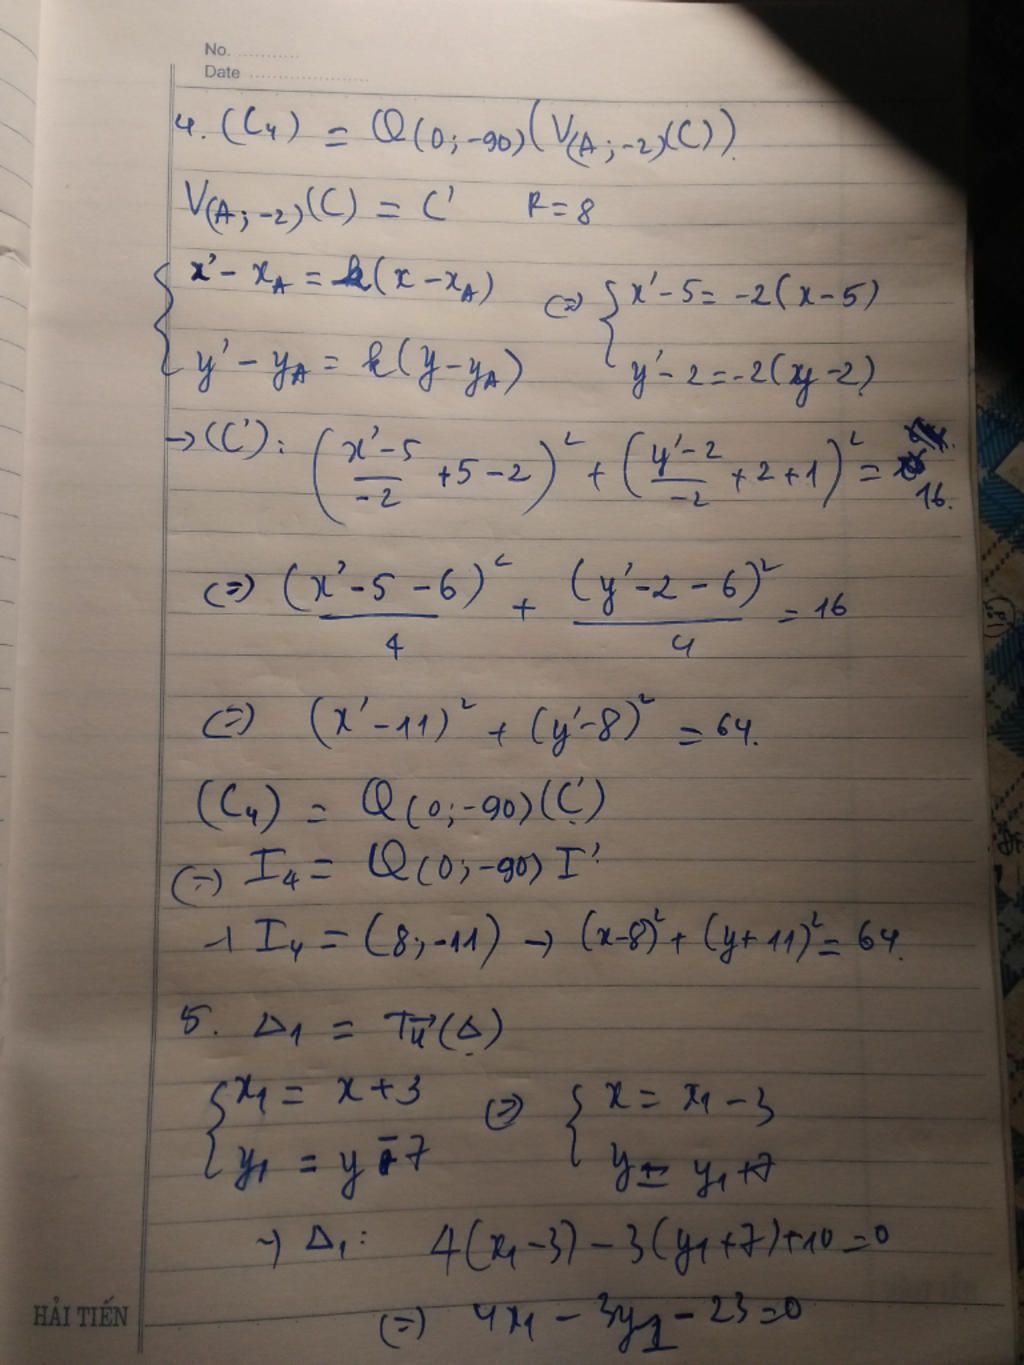 No. ............
Date .....................
4. (C₄) = Q(0;-90)(V(A;-2)(C)).
V(A;-2)(C) = C' R=8
{ x' - x_A = k(x - x_A) (=) { x' - 5 = -2(x - 5)
{ y' - y_A = k(y - y_A) { y' - 2 = -2(y - 2)
→ (C'): ((x' - 5)/-2 + 5 - 2)² + ((y' - 2)/-2 + 2 + 1)² = 16.
(=) (x' - 5 - 6)²/4 + (y' - 2 - 6)²/4 = 16
(=) (x' - 11)² + (y' - 8)² = 64.
(C₄) = Q(0;-90)(C')
(=) I₄ = Q(0;-90) I'
→ I₄ = (8;-11) → (x-8)² + (y+11)² = 64.
5. Δ1 = Tu⃗(Δ)
{ x₁ = x + 3 (=) { x = x₁ - 3
{ y₁ = y - 7 { y = y₁ + 7
→ Δ₁: 4(x₁ - 3) - 3(y₁ + 7) + 10 = 0
(=) 4x₁ - 3y₁ - 23 = 0
HẢI TIẾN